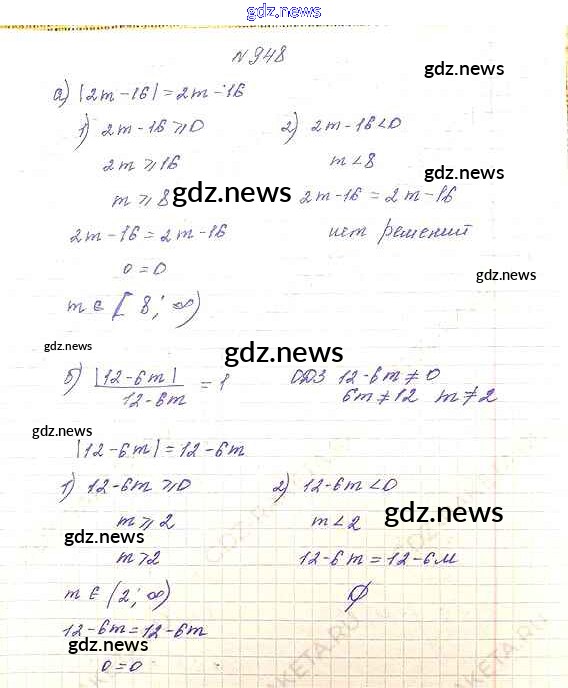 gdz.news
N 948
gdz.news
а) |2m-16|=2m-16
1) 2m-16⩾0
2) 2m-16<0
2m⩾16
m<8
gdz.news
m⩾8
gdz.news
2m-16=2m-16
2m-16=2m-16
нет решений
0=0
gdz.news
m∈[8;∞)
gdz.news
gdz.news
б) |12-6m|/12-6m =1
ОДЗ 12-6m≠0
6m≠12 m≠2
gdz.news
|12-6m|=12-6m
1) 12-6m⩾0
2) 12-6m<0
m⩾2
m<2
gdz.news
gdz.news
m>2
12-6m=12-6м
m∈(2;∞)
∅
12-6m=12-6m
gdz.news
0=0